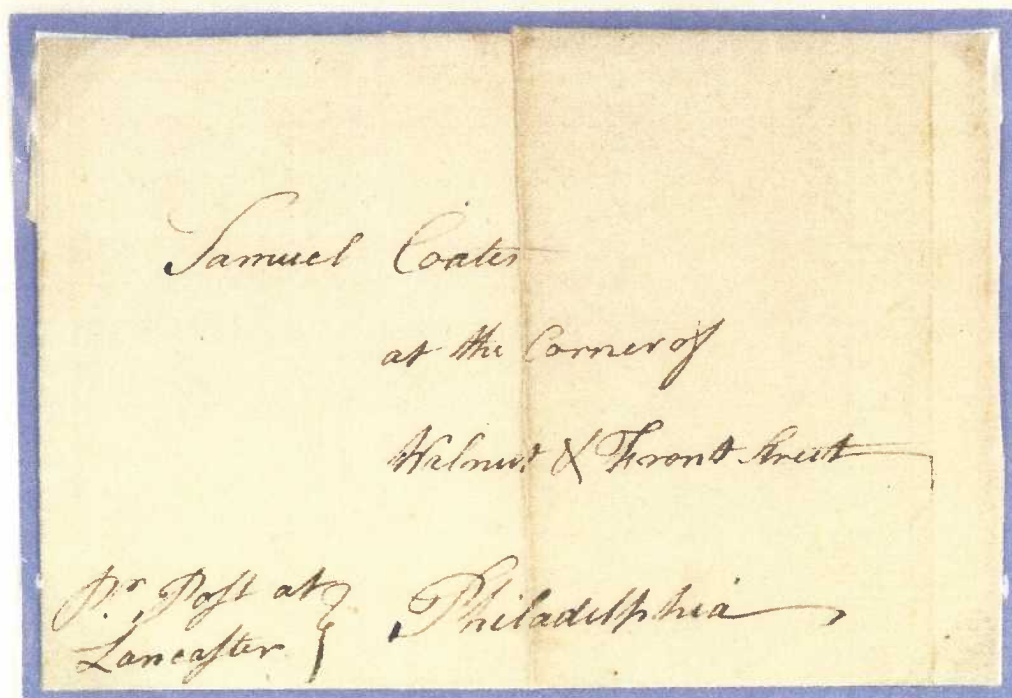 Samuel Coates
at the Corner of
Walnut & Front Street
Pr. Post at
Lancaster } Philadelphia